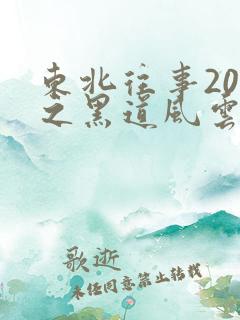 東北往事20
之黑道風雲
歌逝
未经同意禁止转载